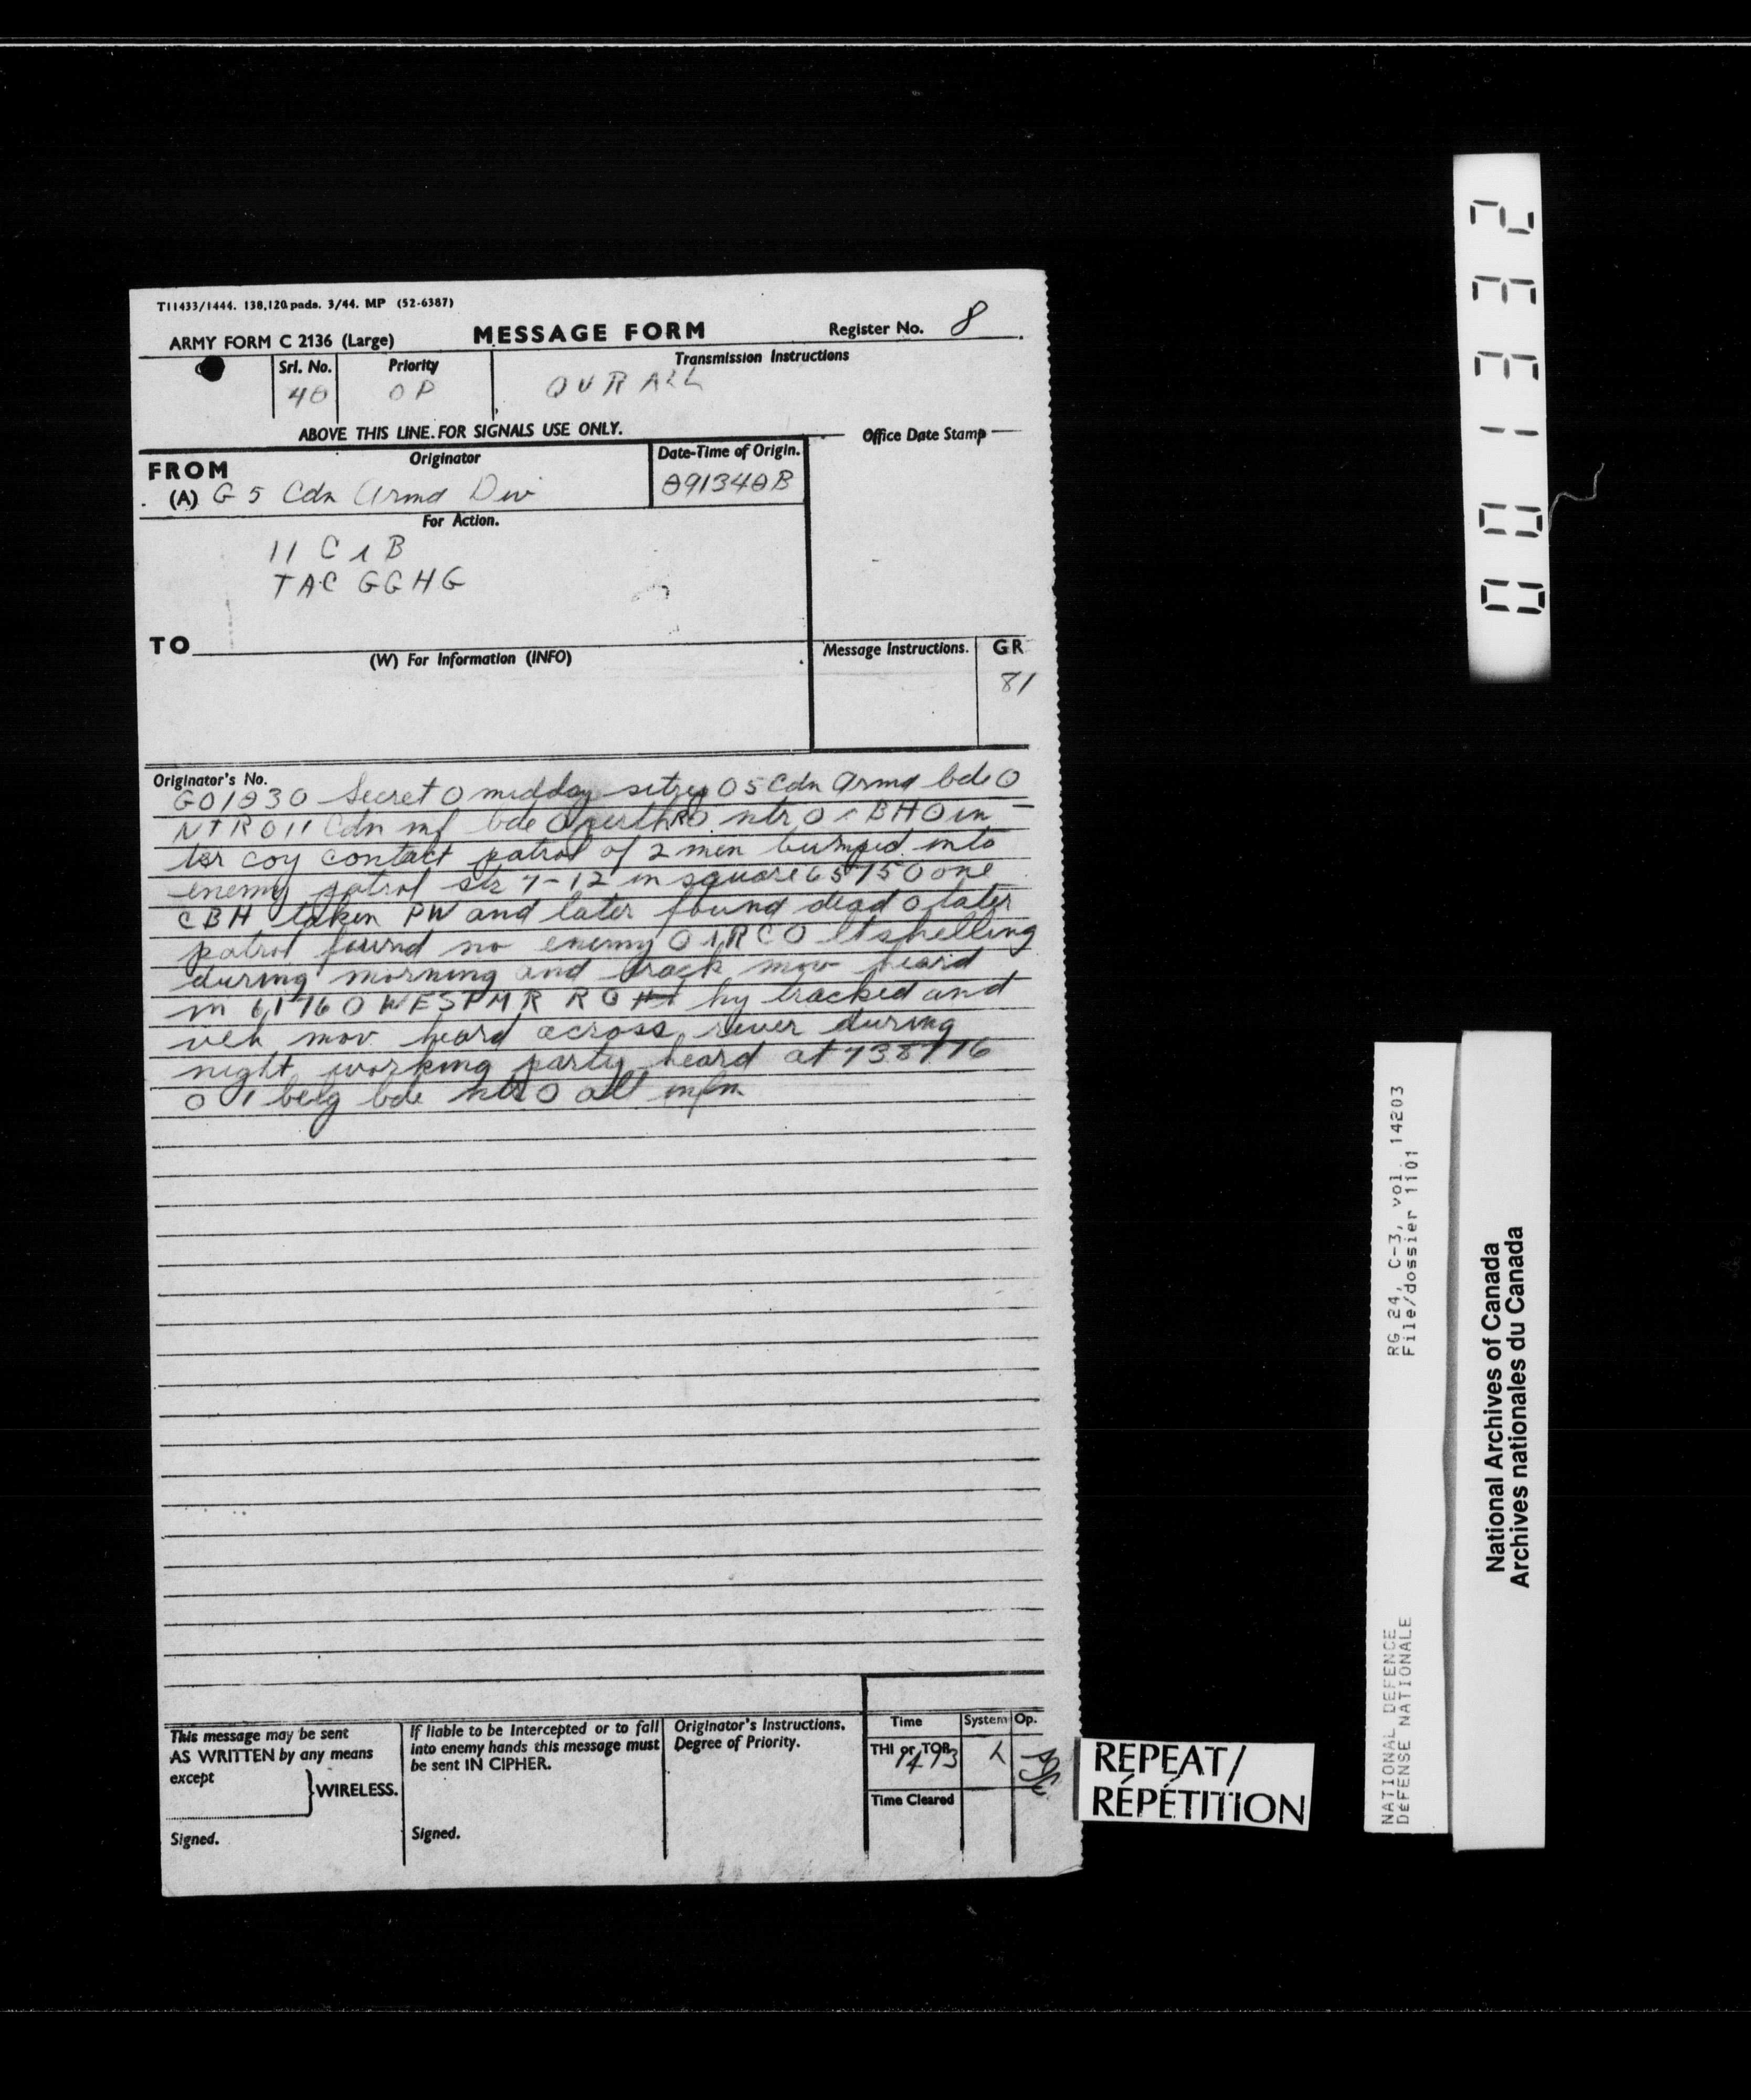 T11433/1444. 138,120 pads. 3/44. MP (52-6387)
ARMY FORM C 2136 (Large) MESSAGE FORM Register No. 8
Srl. No. Priority Transmission Instructions
40 OP QVR ALL
ABOVE THIS LINE FOR SIGNALS USE ONLY.
Office Date Stamp
FROM Originator Date-Time of Origin.
(A) G 5 Cdn Armd Div 091340B
For Action.
11 C I B
TAC GGHG
TO
(W) For Information (INFO)
Message Instructions. GR
81
Originator's No.
GO1030 Secret O midday sitrep O 5 Cdn Armd bde O
NTR O 11 Cdn inf bde O perth R O ntr O CBH O in
ter coy contact patrol of 2 men bumped into
enemy patrol str 7-12 in square 6575 O one
CBH taken PW and later found dead O later
patrol found no enemy O IRC O lt shelling
during morning and track mov heard
in 6176 O WESTMR R O hy tracked and
veh mov heard across river during
night working party heard at 738776
O 1 belg bde ntr O all infm
This message may be sent
AS WRITTEN by any means
except
WIRELESS.
Signed.
If liable to be intercepted or to fall
into enemy hands this message must
be sent IN CIPHER.
Signed.
Originator's Instructions.
Degree of Priority.
Time System Op.
THI or TOR 1413 L
Time Cleared
REPEAT/
RÉPÉTITION
001332
RG 24, C-3, vol. 14203
File/dossier 1101
NATIONAL DEFENCE
DÉFENSE NATIONALE
National Archives of Canada
Archives nationales du Canada